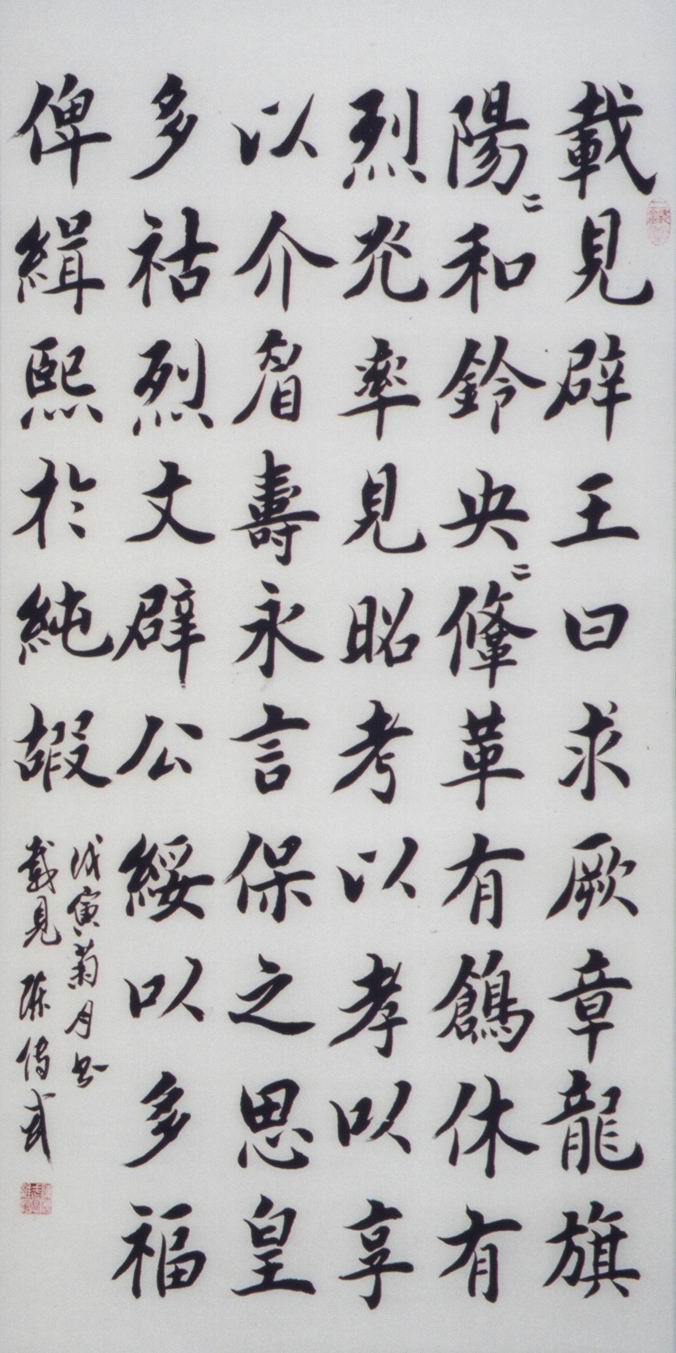 載見辟王曰求厥章龍旗
陽〻和鈴央〻鞗革有鶬休有
烈光率見昭考以孝以享
以介眉壽永言保之思皇
多祜烈文辟公綏以多福
俾緝熙於純嘏
戊寅菊月书
載見 陈